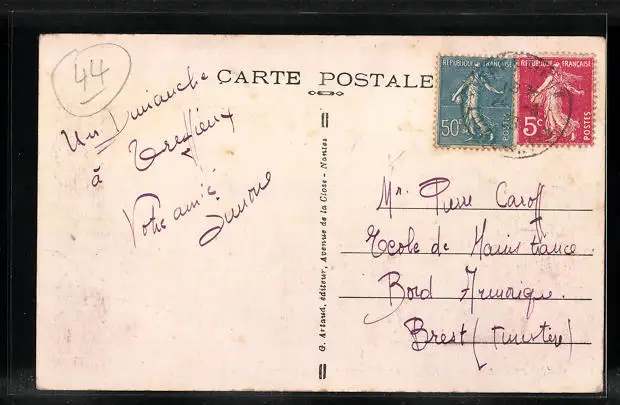 44
CARTE POSTALE
Un Dimanche
à Treffieux
Votre amie
Simone
G. Artaud, éditeur, Avenue de la Close - Nantes
REPUBLIQUE FRANÇAISE
50c
POSTES
REPUBLIQUE FRANÇAISE
5c
POSTES
Mr. Pierre Caroff
Ecole de Maistrance
Bord Armorique.
Brest (Finistère)